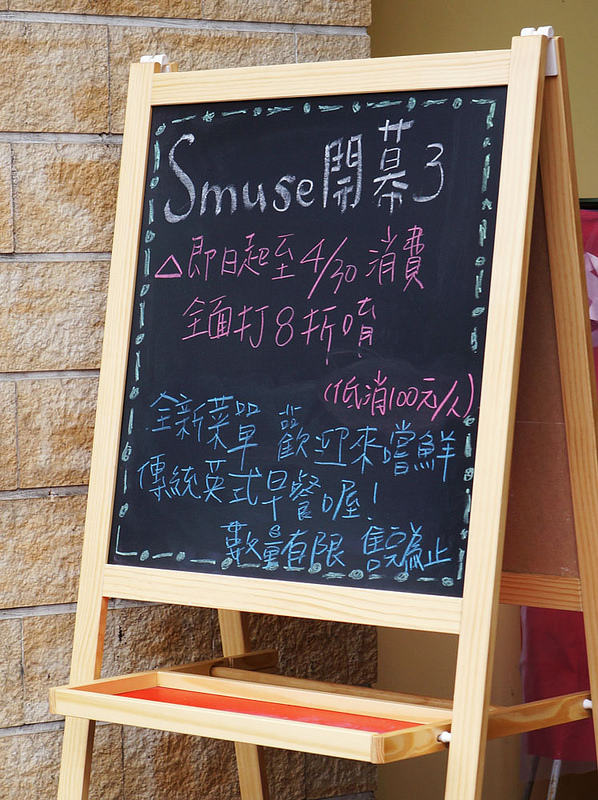 Smuse開幕3
△即日起至4/30消費
全面打8折唷!
(低消100元/人)
全新菜單 歡迎來嚐鮮
傳統英式早餐喔!
數量有限 售完為止